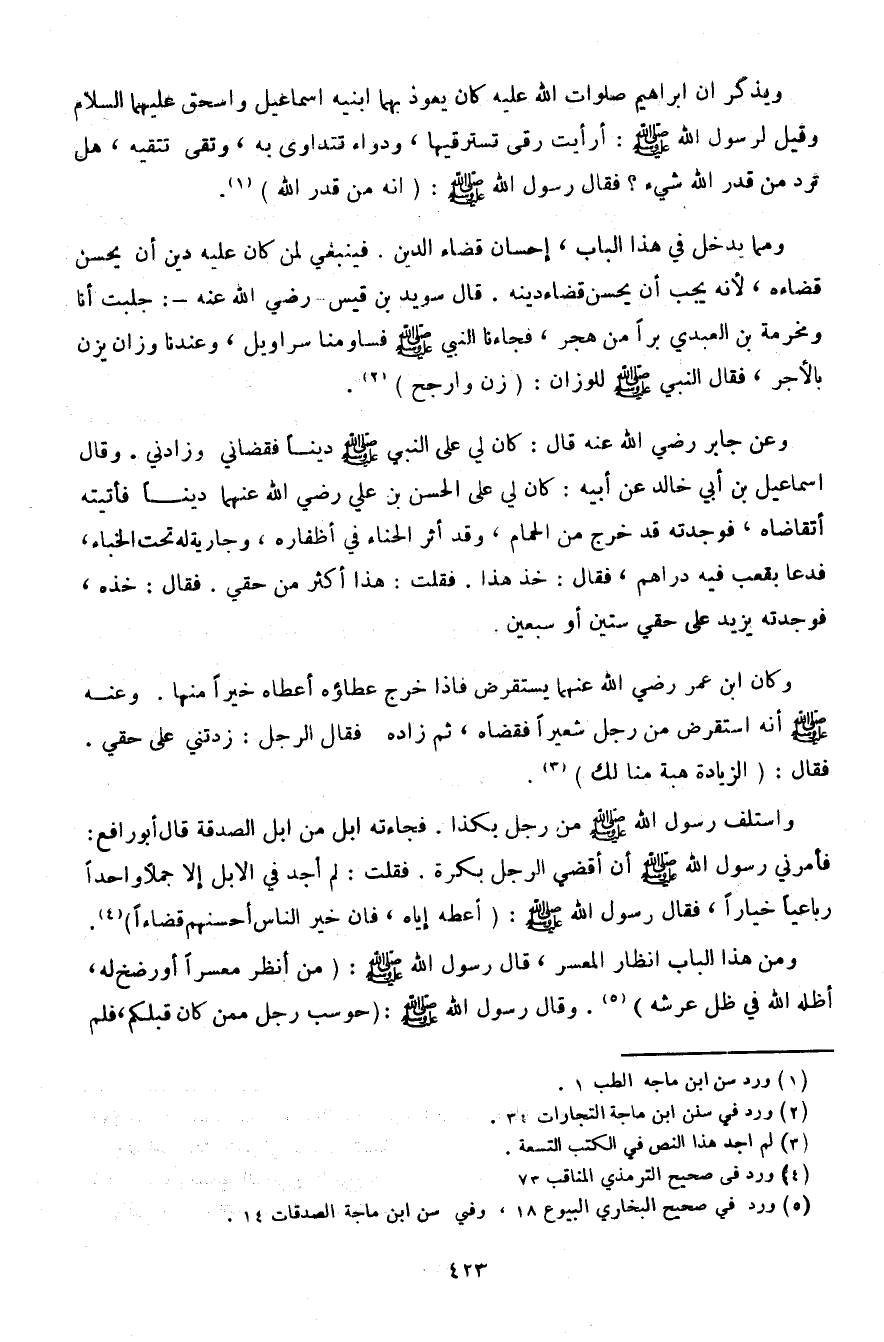 ويذكر ان ابراهيم صلوات الله عليه كان يعوذ بهما ابنيه اسماعيل واسحق عليهما السلام
وقيل لرسول الله ﷺ : أرأيت رقى تسترقيها ، ودواء تتداوى به ، وتقى تتقيه ، هل
ترد من قدر الله شيء ؟ فقال رسول الله ﷺ : ( انه من قدر الله ) (١).
ومما يدخل في هذا الباب ، إحسان قضاء الدين . فينبغي لمن كان عليه دين أن يحسن
قضاءه ، لأنه يجب أن يحسن قضاء دينه . قال سويد بن قيس - رضي الله عنه -: جلبت أنا
ومخرمة بن العبدي براً من هجر ، فجاءنا النبي ﷺ فساومنا سراويل ، وعندنا وزان يزن
بالأجر ، فقال النبي ﷺ للوزان : ( زن وارجح ) (٢) .
وعن جابر رضي الله عنه قال : كان لي على النبي ﷺ دينـاً فقضاني وزادني . وقال
اسماعيل بن أبي خالد عن أبيه : كان لي على الحسن بن علي رضي الله عنهما دينـــاً فأتيته
أتقاضاه ، فوجدته قد خرج من الحمام ، وقد أثر الحناء في أظفاره ، وجارية له تحت الخباء،
فدعا بقعب فيه دراهم ، فقال : خذ هذا . فقلت : هذا أكثر من حقي . فقال : خذه ،
فوجدته يزيد على حقي ستين أو سبعين .
وكان ابن عمر رضي الله عنهما يستقرض فاذا خرج عطاؤه أعطاه خيراً منها . وعنــه
ﷺ أنه استقرض من رجل شعيراً فقضاه ، ثم زاده فقال الرجل : زدتني على حقي .
فقال : ( الزيادة هبة منا لك ) (٣) .
واستلف رسول الله ﷺ من رجل بكذا . فجاءته ابل من ابل الصدقة قال أبو رافع:
فأمرني رسول الله ﷺ أن أقضي الرجل بكرة . فقلت : لم أجد في الابل إلا جملاً واحداً
رباعياً خياراً ، فقال رسول الله ﷺ : ( أعطه إياه ، فان خير الناس أحسنهم قضاءاً)(٤).
ومن هذا الباب انظار المعسر ، قال رسول الله ﷺ : ( من أنظر معسراً أو رضخ له،
أظله الله في ظل عرشه ) (٥) . وقال رسول الله ﷺ :(حوسب رجل ممن كان قبلكم،فلم
(١) ورد سن ابن ماجه الطب ١ .
(٢) ورد في سنن ابن ماجة التجارات ٣٤ .
(٣) لم اجد هذا النص في الكتب التسعة .
(٤) ورد فى صحيح الترمذي المناقب ٧٣
(٥) ورد في صحيح البخاري البيوع ١٨ ، وفي سن ابن ماجة الصدقات ١٤ .
٤٢٣